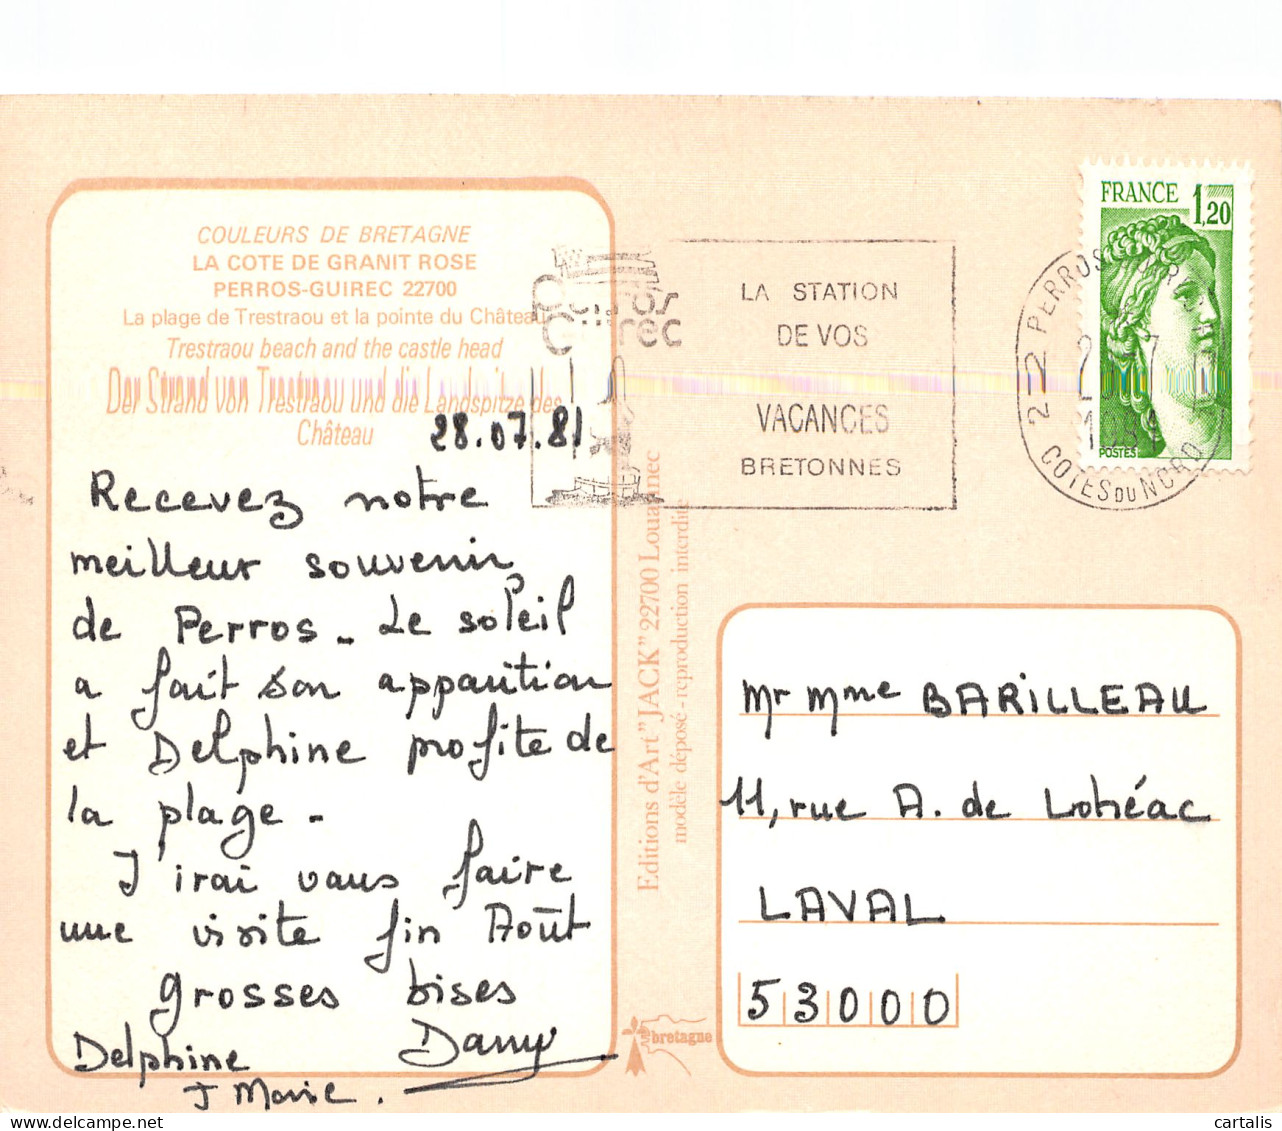 COULEURS DE BRETAGNE
LA COTE DE GRANIT ROSE
PERROS-GUIREC 22700
La plage de Trestraou et la pointe du Château
Trestraou beach and the castle head
Der Strand von Trestraou und die Landspitze des
Château
28.07.81
Recevez notre
meilleur souvenir
de Perros - Le soleil
a fait son apparition
et Delphine profite de
la plage -
J'irai vous faire
une visite fin Août
grosses bises
Delphine Dany
J Marie.
Perros
Guirec
LA STATION
DE VOS
VACANCES
BRETONNES
FRANCE 1,20
POSTES
22 PERROS-GUIREC
COTES DU NORD
Editions d'Art "JACK" 22700 Louannec
modèle déposé - reproduction interdite
bretagne
Mr Mme BARILLEAU
11, rue A. de Lohéac
LAVAL
53000
cartalis